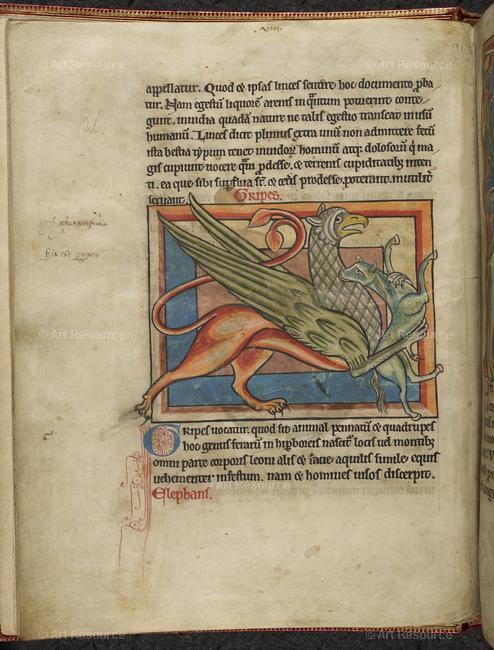 .viii.
appellatur. Quod & ipsas linces sentire hoc documento proba
tur. Nam egestū liquorē arenis in q̄ntum potuerint conte
gunt. inuidia quadā nature ne talis egestio transeat in usū
humanū. Linces dicit plinius extra unū non admittere fetū
ista bestia typum tenet inuidorꝫ hominū atqꝫ dolosorū q̇ ma
gis cupiunt nocere q̄m ꝓdesse. & terrenis cupiditatibꝫ inten
ti. ea que sibi suꝑflua st̄. & cet̄is prodesse poterant. inutilit̄
seruant.
Gripes.
GRipes uocatur. quod sit animal pennatū & quadrupes
hoc genus ferarū in hiꝑboreis nascit̄ locis uel montibꝫ
omni parte corporis leoni alis & facie aquilis simile. equis
uehementer infestum. nam & homines uisos discerpit.
Elephans.
© Art Resource
© Art Resource
© Art Resource
© Art Resource
© Art Resource
© Art Resource